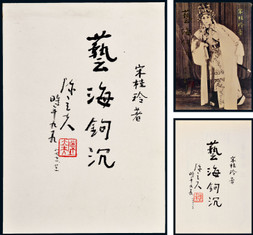 宋桂玲著
藝海鉤沉
陳立夫
時年九五
宋桂玲
宋桂玲著
藝海鉤沉
陳立夫
時年九五